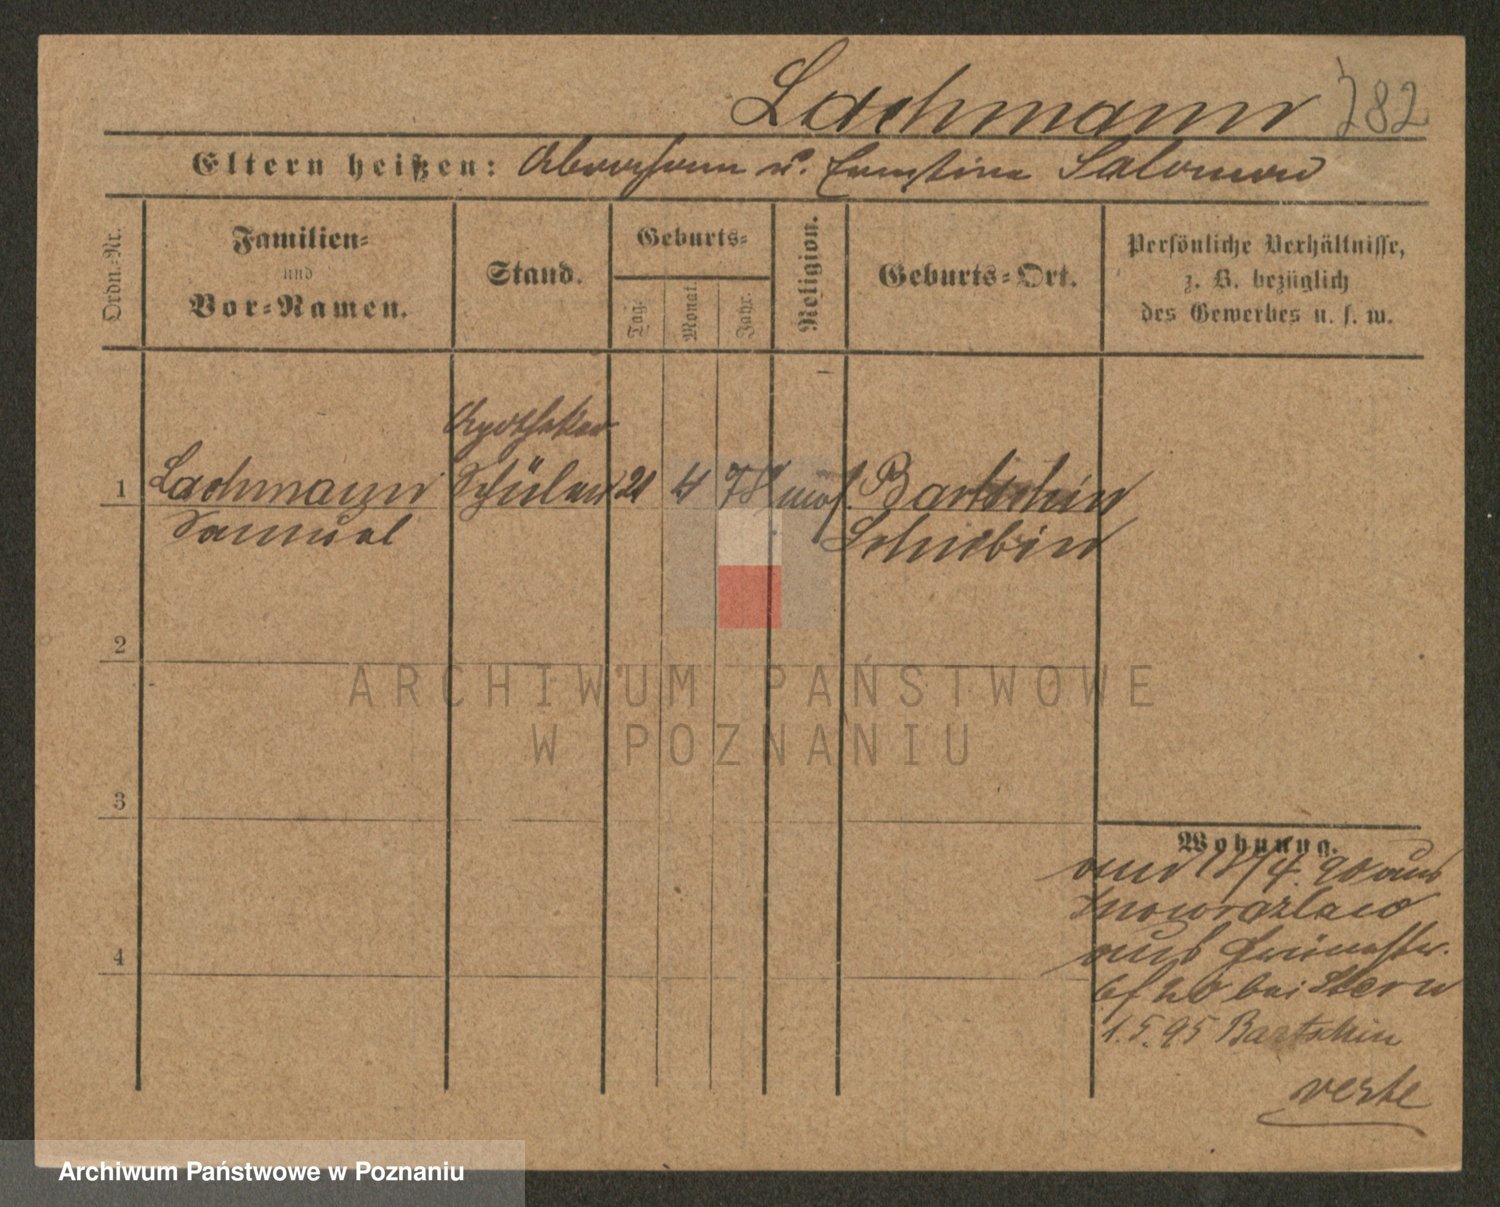 Lachmann 282
Eltern heißen: Abraham u. Ernstine Salomon
Ordn.-Nr.
Familien-
und
Vor-Namen.
Stand.
Geburts-
Tag.
Monat.
Jahr.
Religion.
Geburts-Ort.
Persönliche Verhältnisse,
z. B. bezüglich
des Gewerbes u. s. w.
Apotheker
1 Lachmann Schüler 21 4 78 mos. Bartschin
Samuel Schubin
2
3
4
Wohnung.
18/4. 90 aus
Inowrazlaw
auf
bei Stern
1.5.95 Bartschin
verte
ARCHIWUM PAŃSTWOWE
W POZNANIU
Archiwum Państwowe w Poznaniu